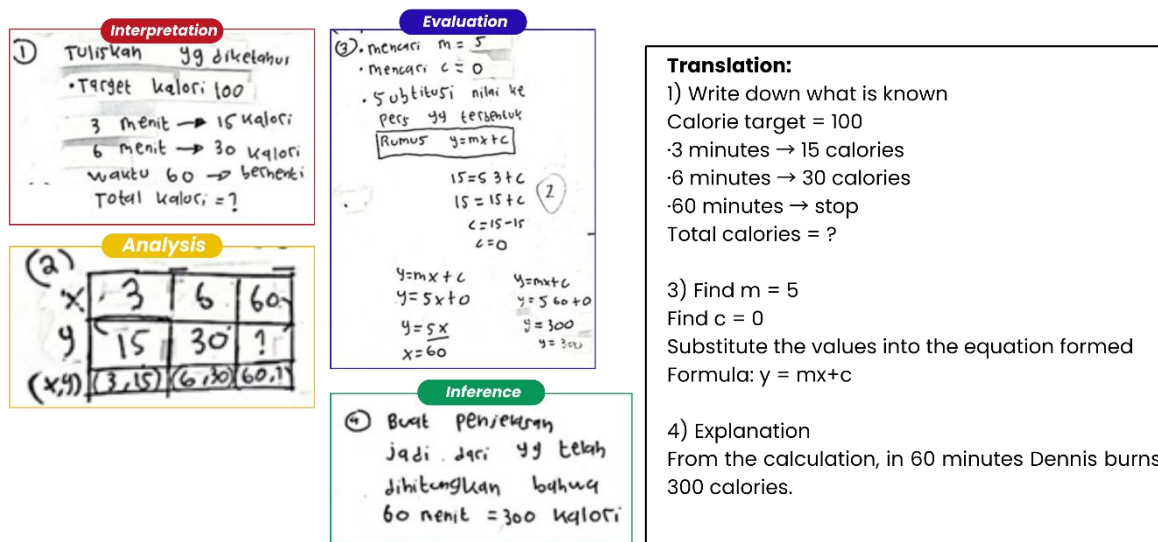 Interpretation
① Tuliskan yg diketahui
• Target kalori 100
3 menit → 15 kalori
6 menit → 30 kalori
waktu 60 → berhenti
Total kalori = ?
Analysis
(2)
x 3 6 60
y 15 30 ?
(x,y) (3,15) (6,30) (60,?)
Evaluation
③ • mencari m = 5
• mencari c = 0
• Subtitusi nilai ke
pers yg terbentuk
Rumus y=mx+c
15=5 3+c
15=15+c
c=15-15
c=0
2
y=mx+c
y=5x+0
y=5x
x=60
y=mx+c
y=5 60+0
y=300
y=300
Inference
④ Buat penjelasan
jadi dari yg telah
dihitungkan bahwa
60 menit = 300 kalori
Translation:
1) Write down what is known
Calorie target = 100
·3 minutes → 15 calories
·6 minutes → 30 calories
·60 minutes → stop
Total calories = ?
3) Find m = 5
Find c = 0
Substitute the values into the equation formed
Formula: y = mx+c
4) Explanation
From the calculation, in 60 minutes Dennis burns
300 calories.